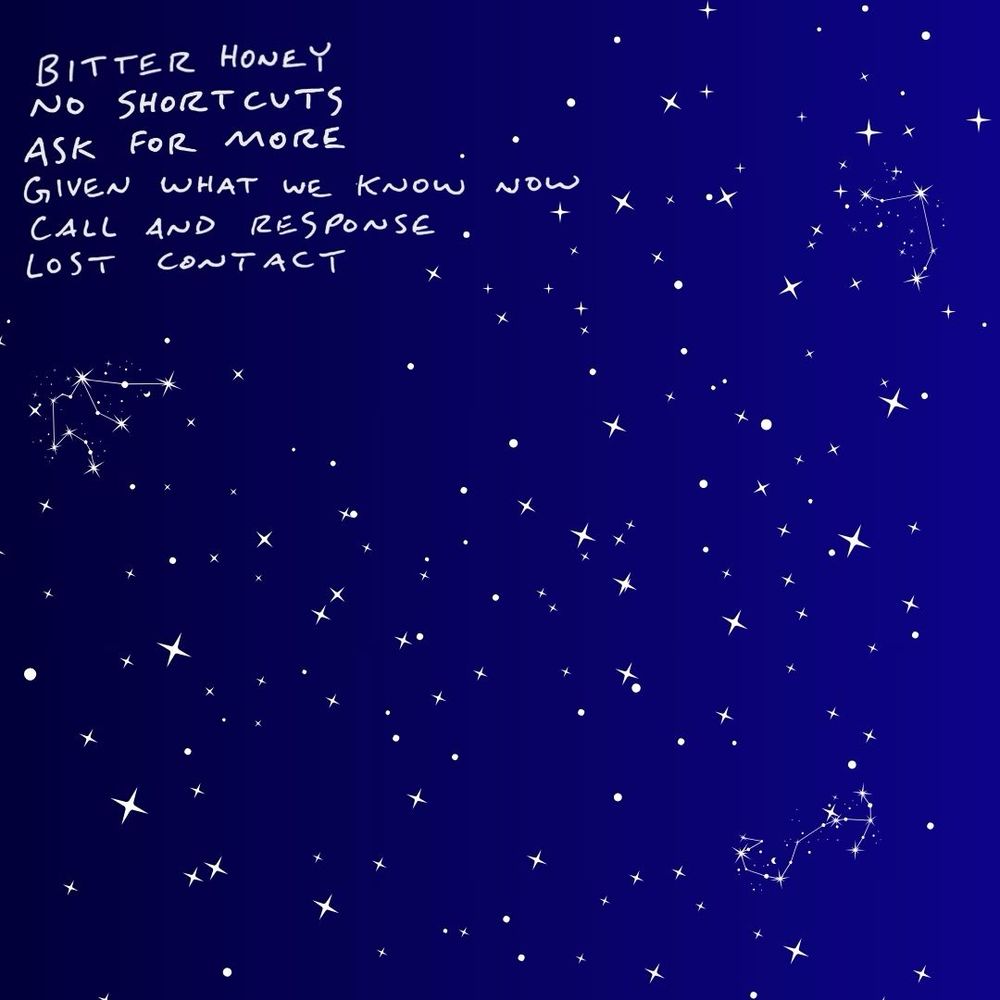 BITTER HONEY
NO SHORTCUTS
ASK FOR MORE
GIVEN WHAT WE KNOW NOW
CALL AND RESPONSE
LOST CONTACT